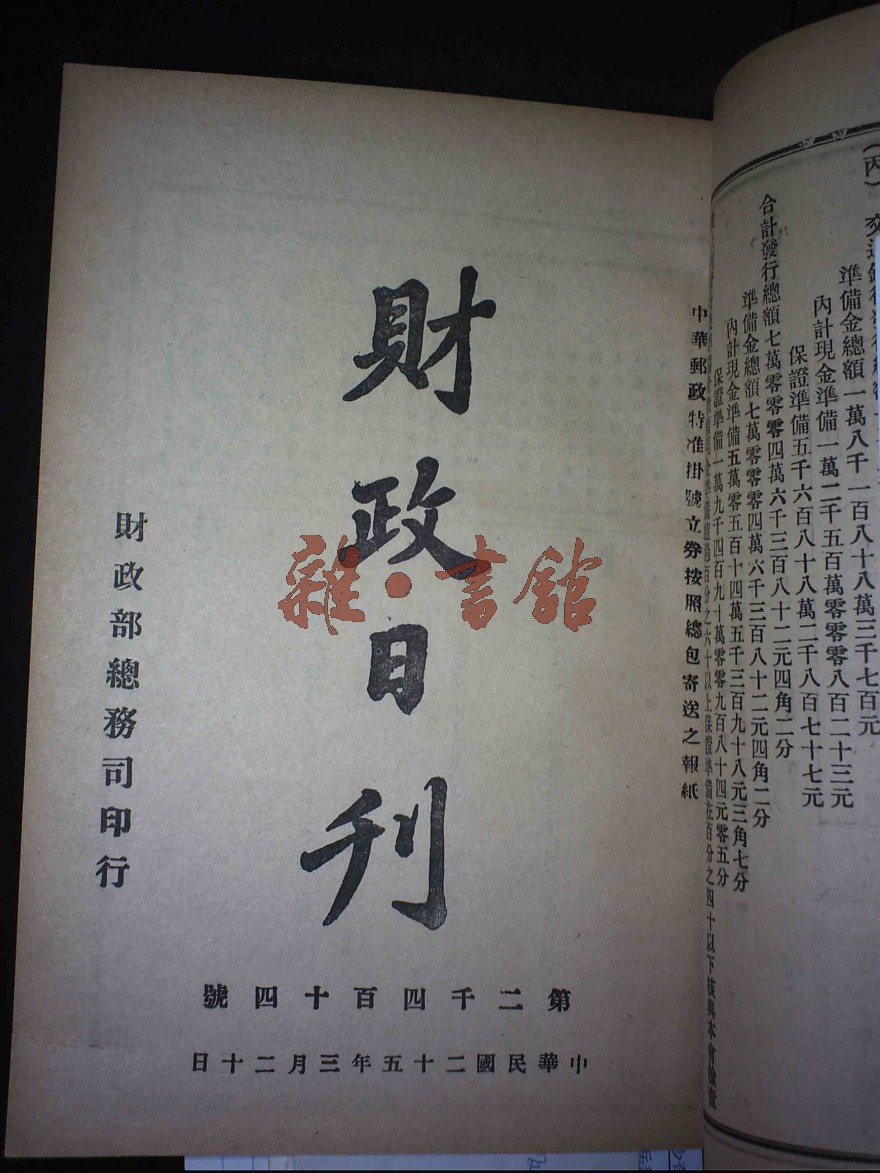 交通銀行發行總額
準備金總額一萬八千一百八十八萬三千七百元
內計現金準備一萬二千五百萬零零八百二十三元
保證準備五千六百八十八萬二千八百七十七元
合計發行總額七萬零零零四萬六千三百八十二元四角二分
準備金總額七萬零零零四萬六千三百八十二元四角二分
內計現金準備五萬零五百十四萬五千三百九十八元三角七分
保證準備一萬九千四百九十萬零零九百八十四元零五分
百分之六十以上保證準備在百分之四十以下核與本會檢查
中華郵政特准掛號立券按照總包寄送之報紙
財政日刊
雜·書館
財政部總務司印行
第二千四百十四號
中華民國二十五年三月二十日